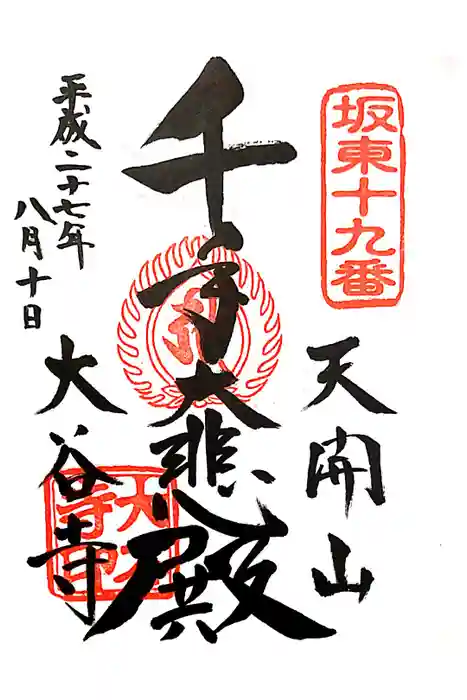 坂東十九番
天開山
千手大悲殿
平成二十七年
八月十日
大谷寺